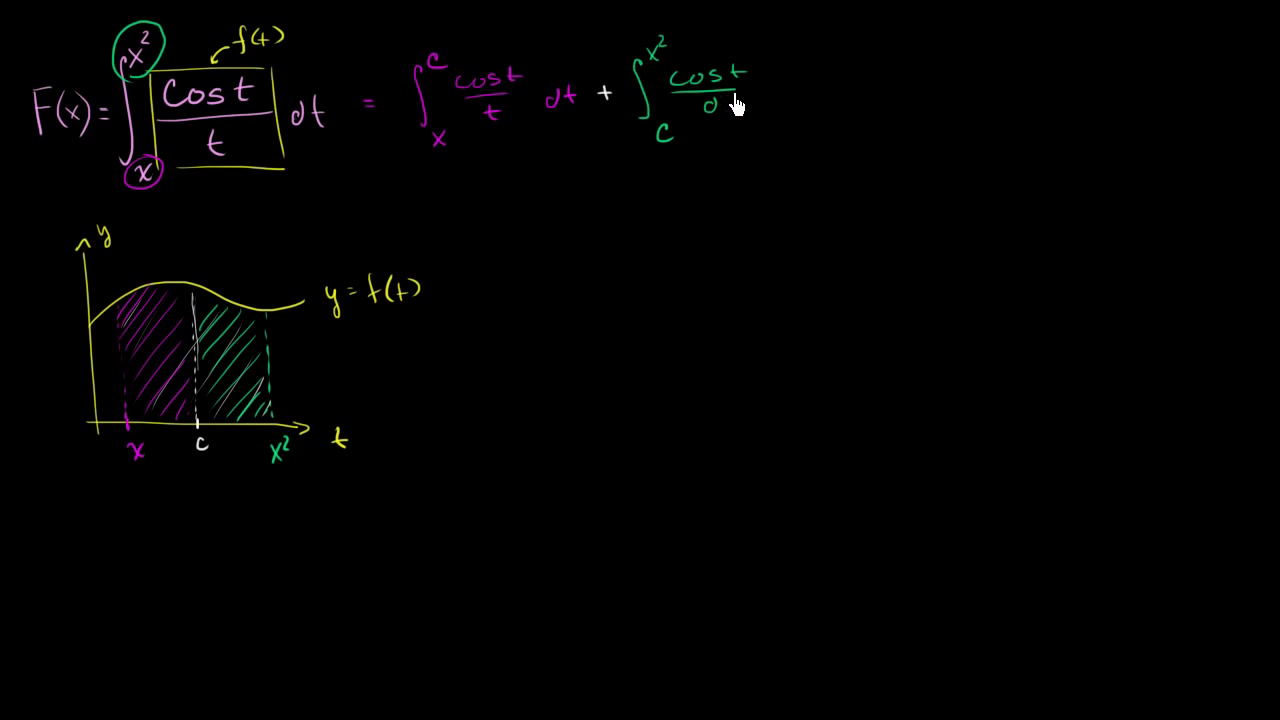 f(t)
F(x) = ∫ₓ^x² cos t / t dt = ∫ₓ^c cos t / t dt + ∫_c^x² cos t / d
y
y = f(t)
x c x² t